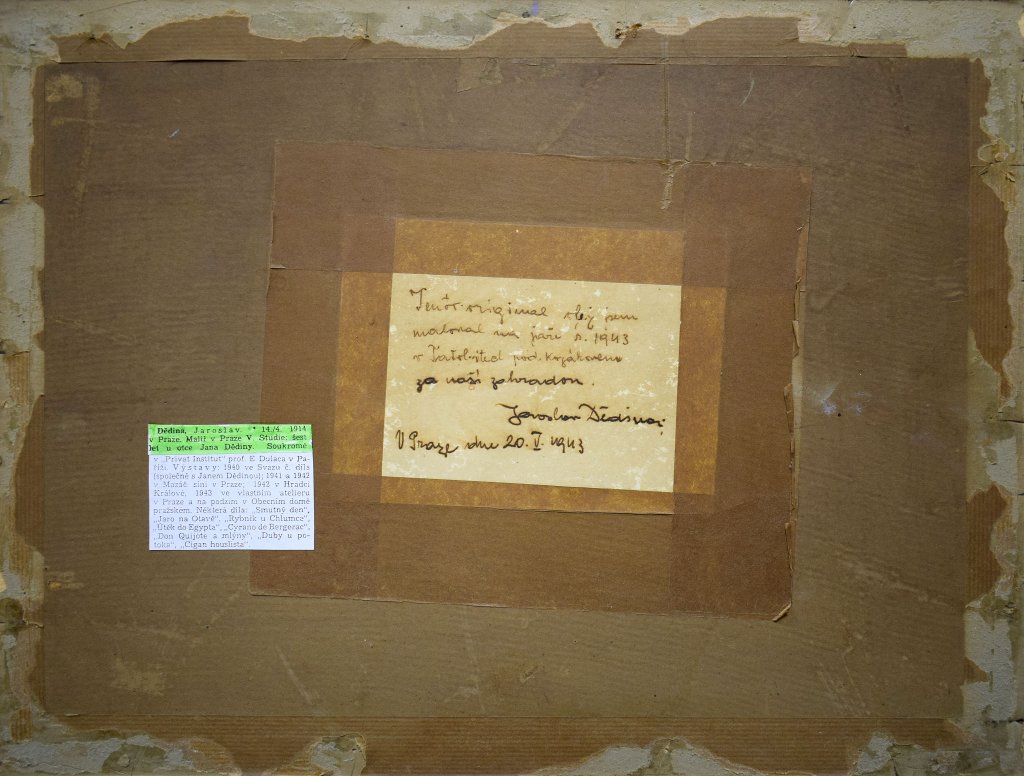 Tenór original olej jsem
maloval na jaře r. 1943
v pod Kozákovem
za naší zahradou.
Jaroslav Dědina.
V Praze dne 20. V. 1943
Dědina, Jaroslav. * 14./4. 1914
v Praze. Malíř v Praze V. Studie: šest
let u otce Jana Dědiny. Soukromě
v „Privat Institut" prof. E Dulaca v Pa-
říži. Výstavy: 1940 ve Svazu č. díla
(společně s Janem Dědinou); 1941 a 1942
v Mazáč. síni v Praze; 1942 v Hradci
Králové, 1943 ve vlastním atelieru
v Praze a na podzim v Obecním domě
pražském. Některá díla: „Smutný den",
„Jaro na Otavě", „Rybník u Chlumce",
„Útěk do Egypta", „Cyrano de Bergerac",
„Don Quijote a mlýny", „Duby u po-
toka", „Cigan houslista".